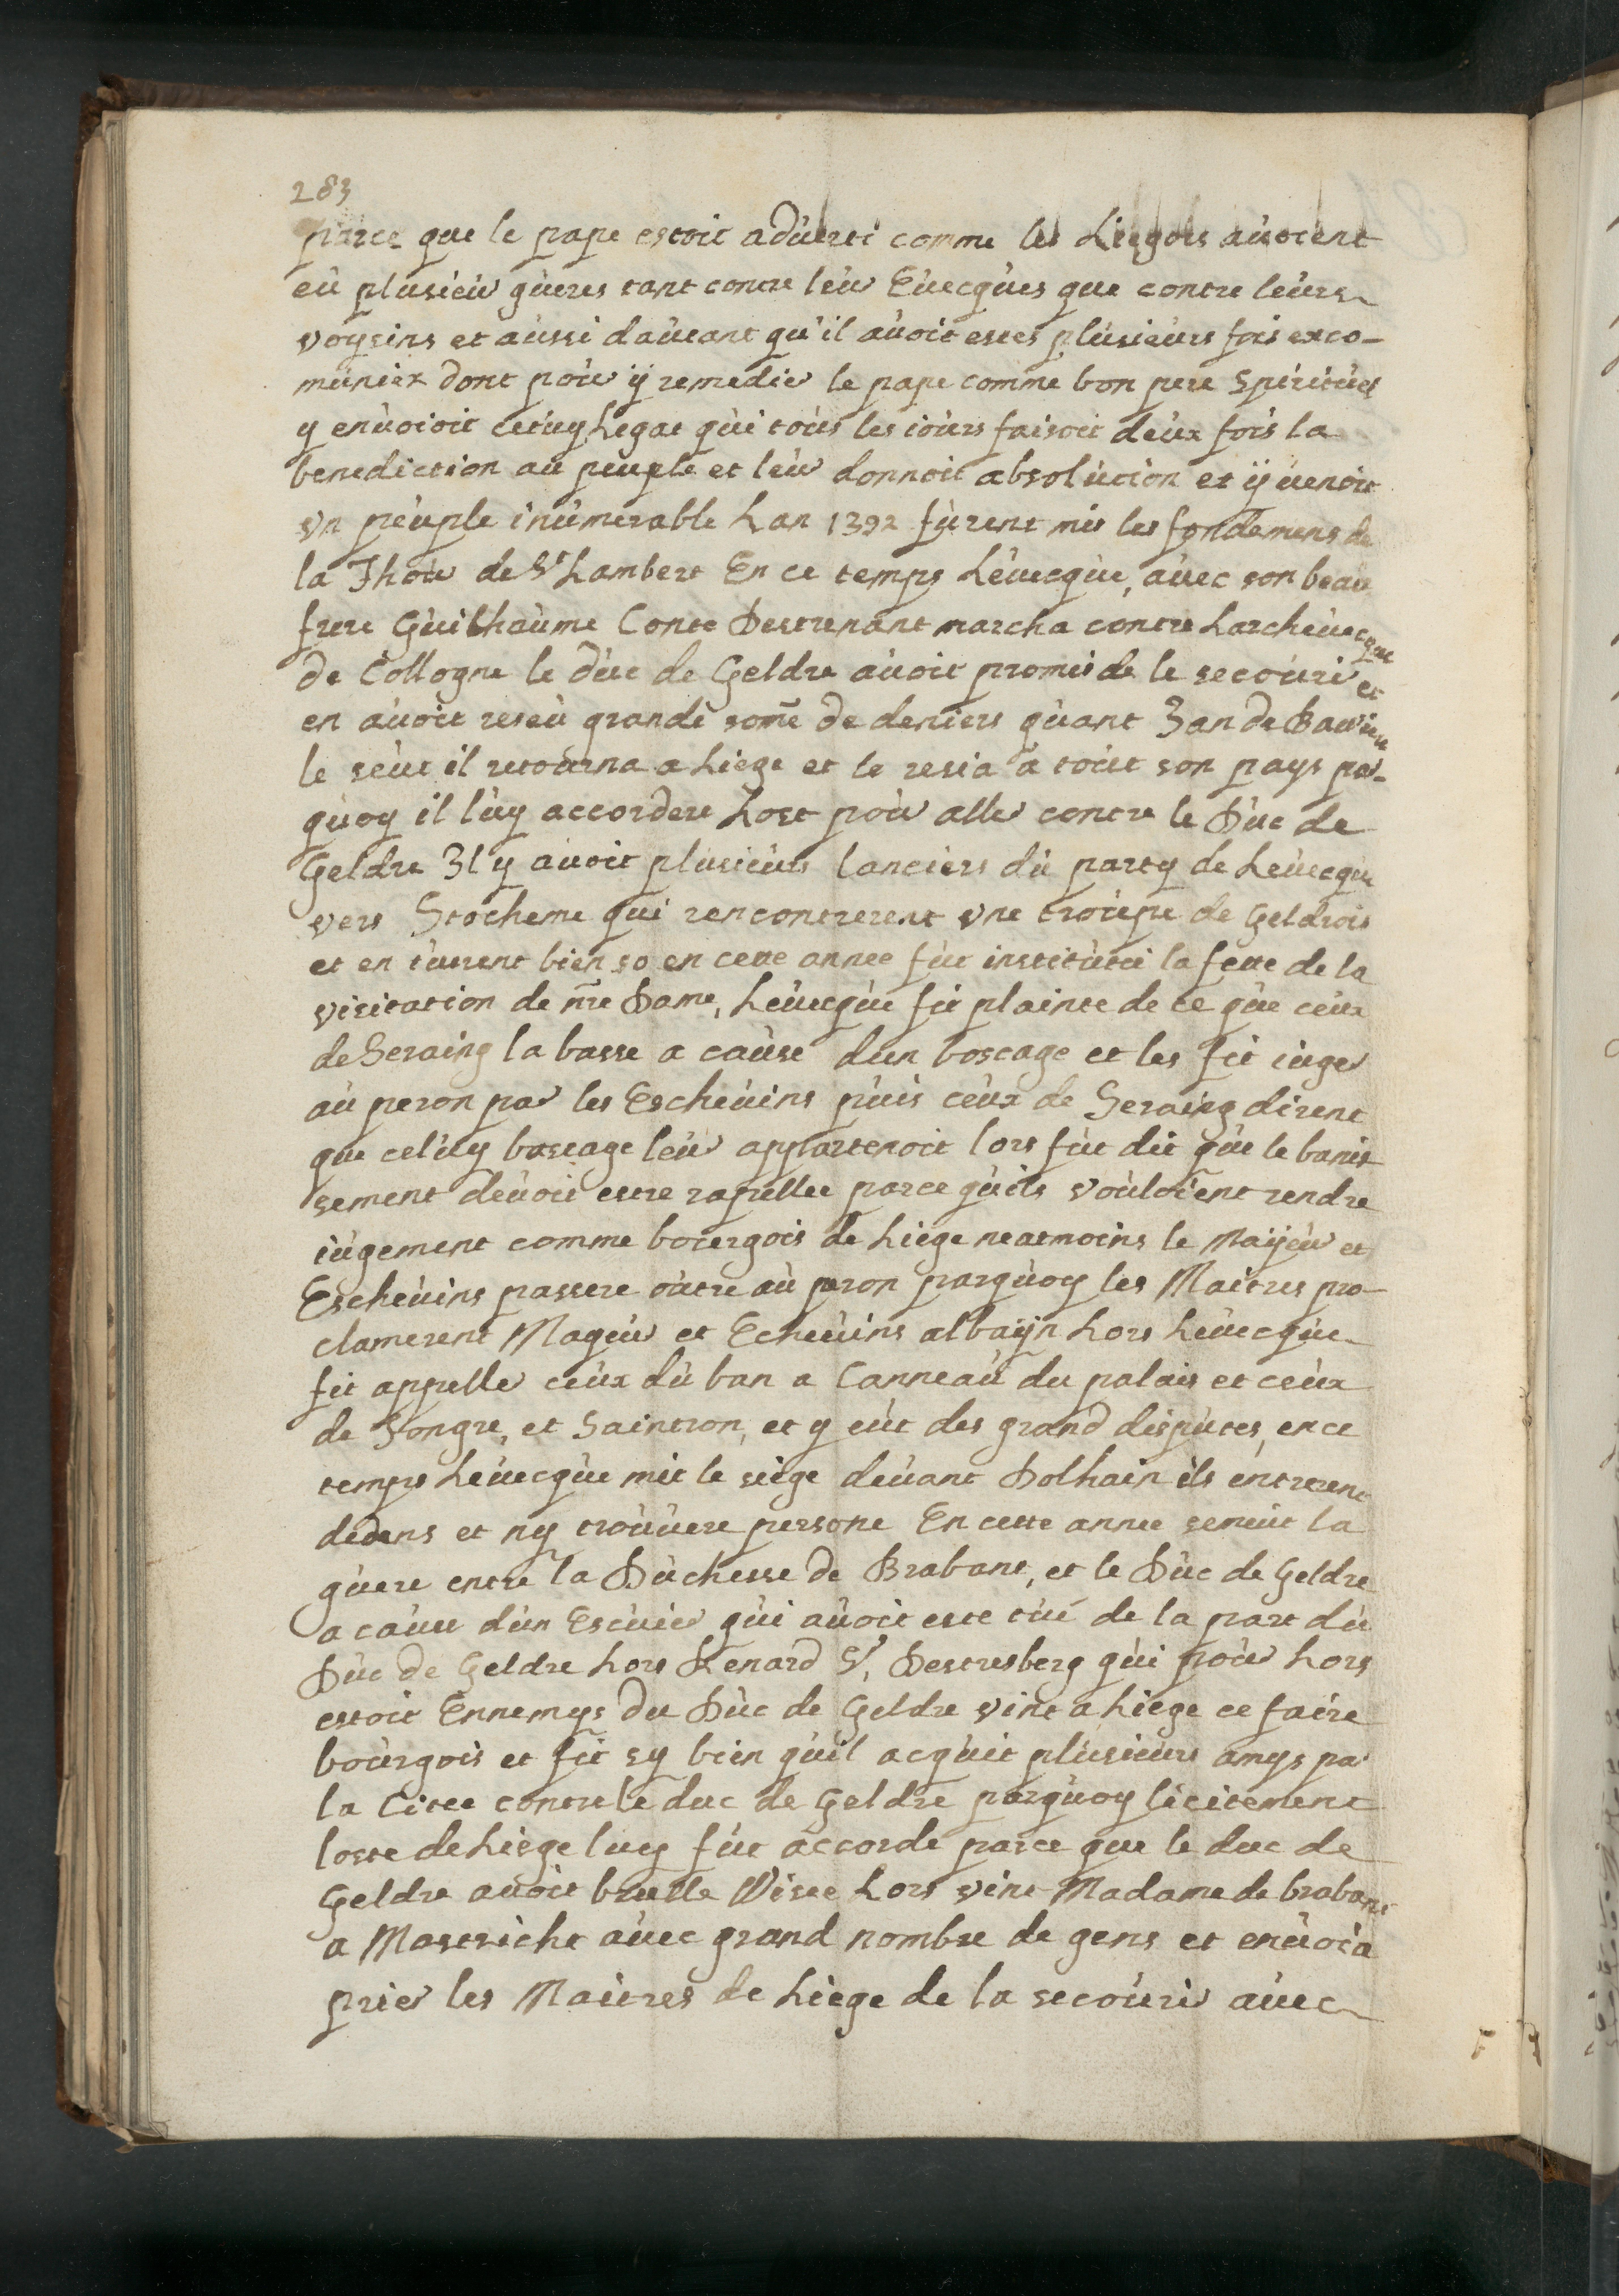 283
parce que le pape estoit aduerti comme les Liegois auoient
eu plusieur gueres tant contre leur Euecques que contre leurs
voysins et aussi dautant qu'il auoit estes plusieurs fois exco-
muniez dont pour ÿ remedier le pape comme bon pere Spirituel
y enuoioit cetuy Legat qui tous les iours faisoit deux fois la
benediction au peuple et leur donnoit absolution et ÿ uenoit
vn peuple inumerable Lan 1392 furent mis les fondemens de
la Thour de St Lambert En ce temps Leuecque, auec son beau
frere Guilhaume Conte Destrenant marcha contre Larcheuecque
de Collogne le duc de Geldre auoit promis de le secourir et
en auoit reseu grande some de deniers quant Jan de Bauiere
le seut il retourna a Liege et le resia a tout son pays par-
quoy il luy accordere Lost pour aller contre le Duc de
Geldre Il y auoit plusieurs lanciers du party de Leuecque
vers Stocheme qui rencontrerent vne troupe de Geldrois
et en tuurent bien 50 en cette annee fut institutei la fette de la
visitation de nre Dame, Leuecque fit plainte de ce que ceux
de Seraing la basse a cause dun boscage et les fit iuger
au peron par les Escheuins puis ceux de Seraing dirent
que celuy boscage leur appartenoit lors fut dit que le banis-
sement deuoit estre rapellee parce quils vouloient rendre
iugement comme bourgois de Liege neatmoins le Maijeur et
Escheuins passere outre au peron parquoy les Maitres pro-
clamerent Mageur et Echeuins albaÿn Lors Leuecque
fit appeller ceux du ban a Lanneau du palais et ceux
de Tongre, et Saintron, et y eut des grand disputes, en ce
temps Leuecque mit le siege deuant Dolhain ils entrerent
dedens et ny trouuere persone En cette annee semeut la
guere entre la Duchesse de Brabant, et le Duc de Geldre
a cause dun Escuier qui auoit este tué de la part du
Duc de Geldre Lors Renard Sr, Destresberg qui pour Lors
estoit Ennemys du Duc de Geldre vint a Liege ce faire
bourgois et fit sy bien quil acquit plusieurs amys par
la Citee contre le duc de Geldre parquoy licitement
loste de Liege luy fut accorde parce que le duc de
Geldre auoit brulle Visee Lors vint Madame de brabant
a Mastricht auec grand nombre de gens et enuoia
prier les Maitres de Liege de la secourir auec